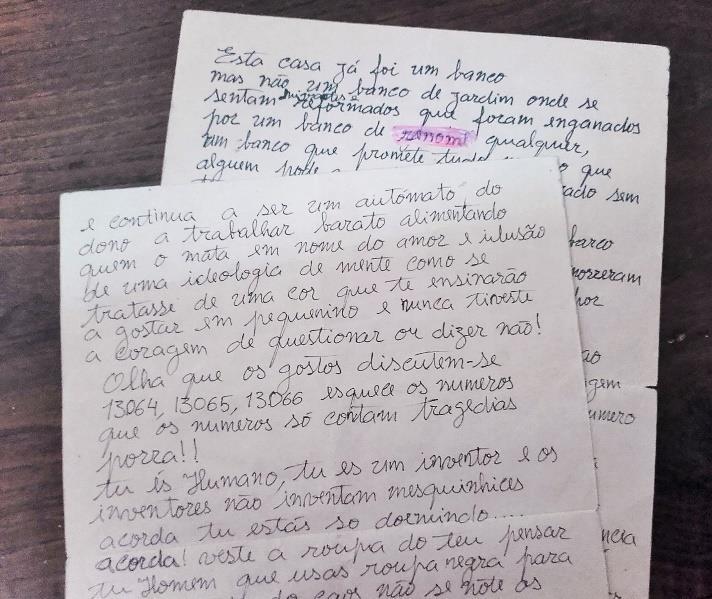 Esta casa já foi um banco
mas não um banco de jardim onde se
sentam reformados que foram enganados
por um banco de renome qualquer,
um banco que promete tudo que
alguem pode
ado sem
barco
morreram
hor
ão
gem
umero
ncia
e continua a ser um autómato do
dono a trabalhar barato alimentando
quem o mata em nome do amor e ilusão
de uma ideologia de mente como se
tratasse de uma cor que te ensinarão
a gostar em pequenino e nunca tiveste
a coragem de questionar ou dizer não!
Olha que os gostos discutem-se
13064, 13065, 13066 esquece os numeros
que os numeros só contam tragedias
porra!!
tu és Humano, tu es um inventor e os
inventores não inventam mesquinhices
acorda tu estás so dormindo....
acorda! veste a roupa do teu pensar
tu Homem que usas roupa negra para
do caos não se note os